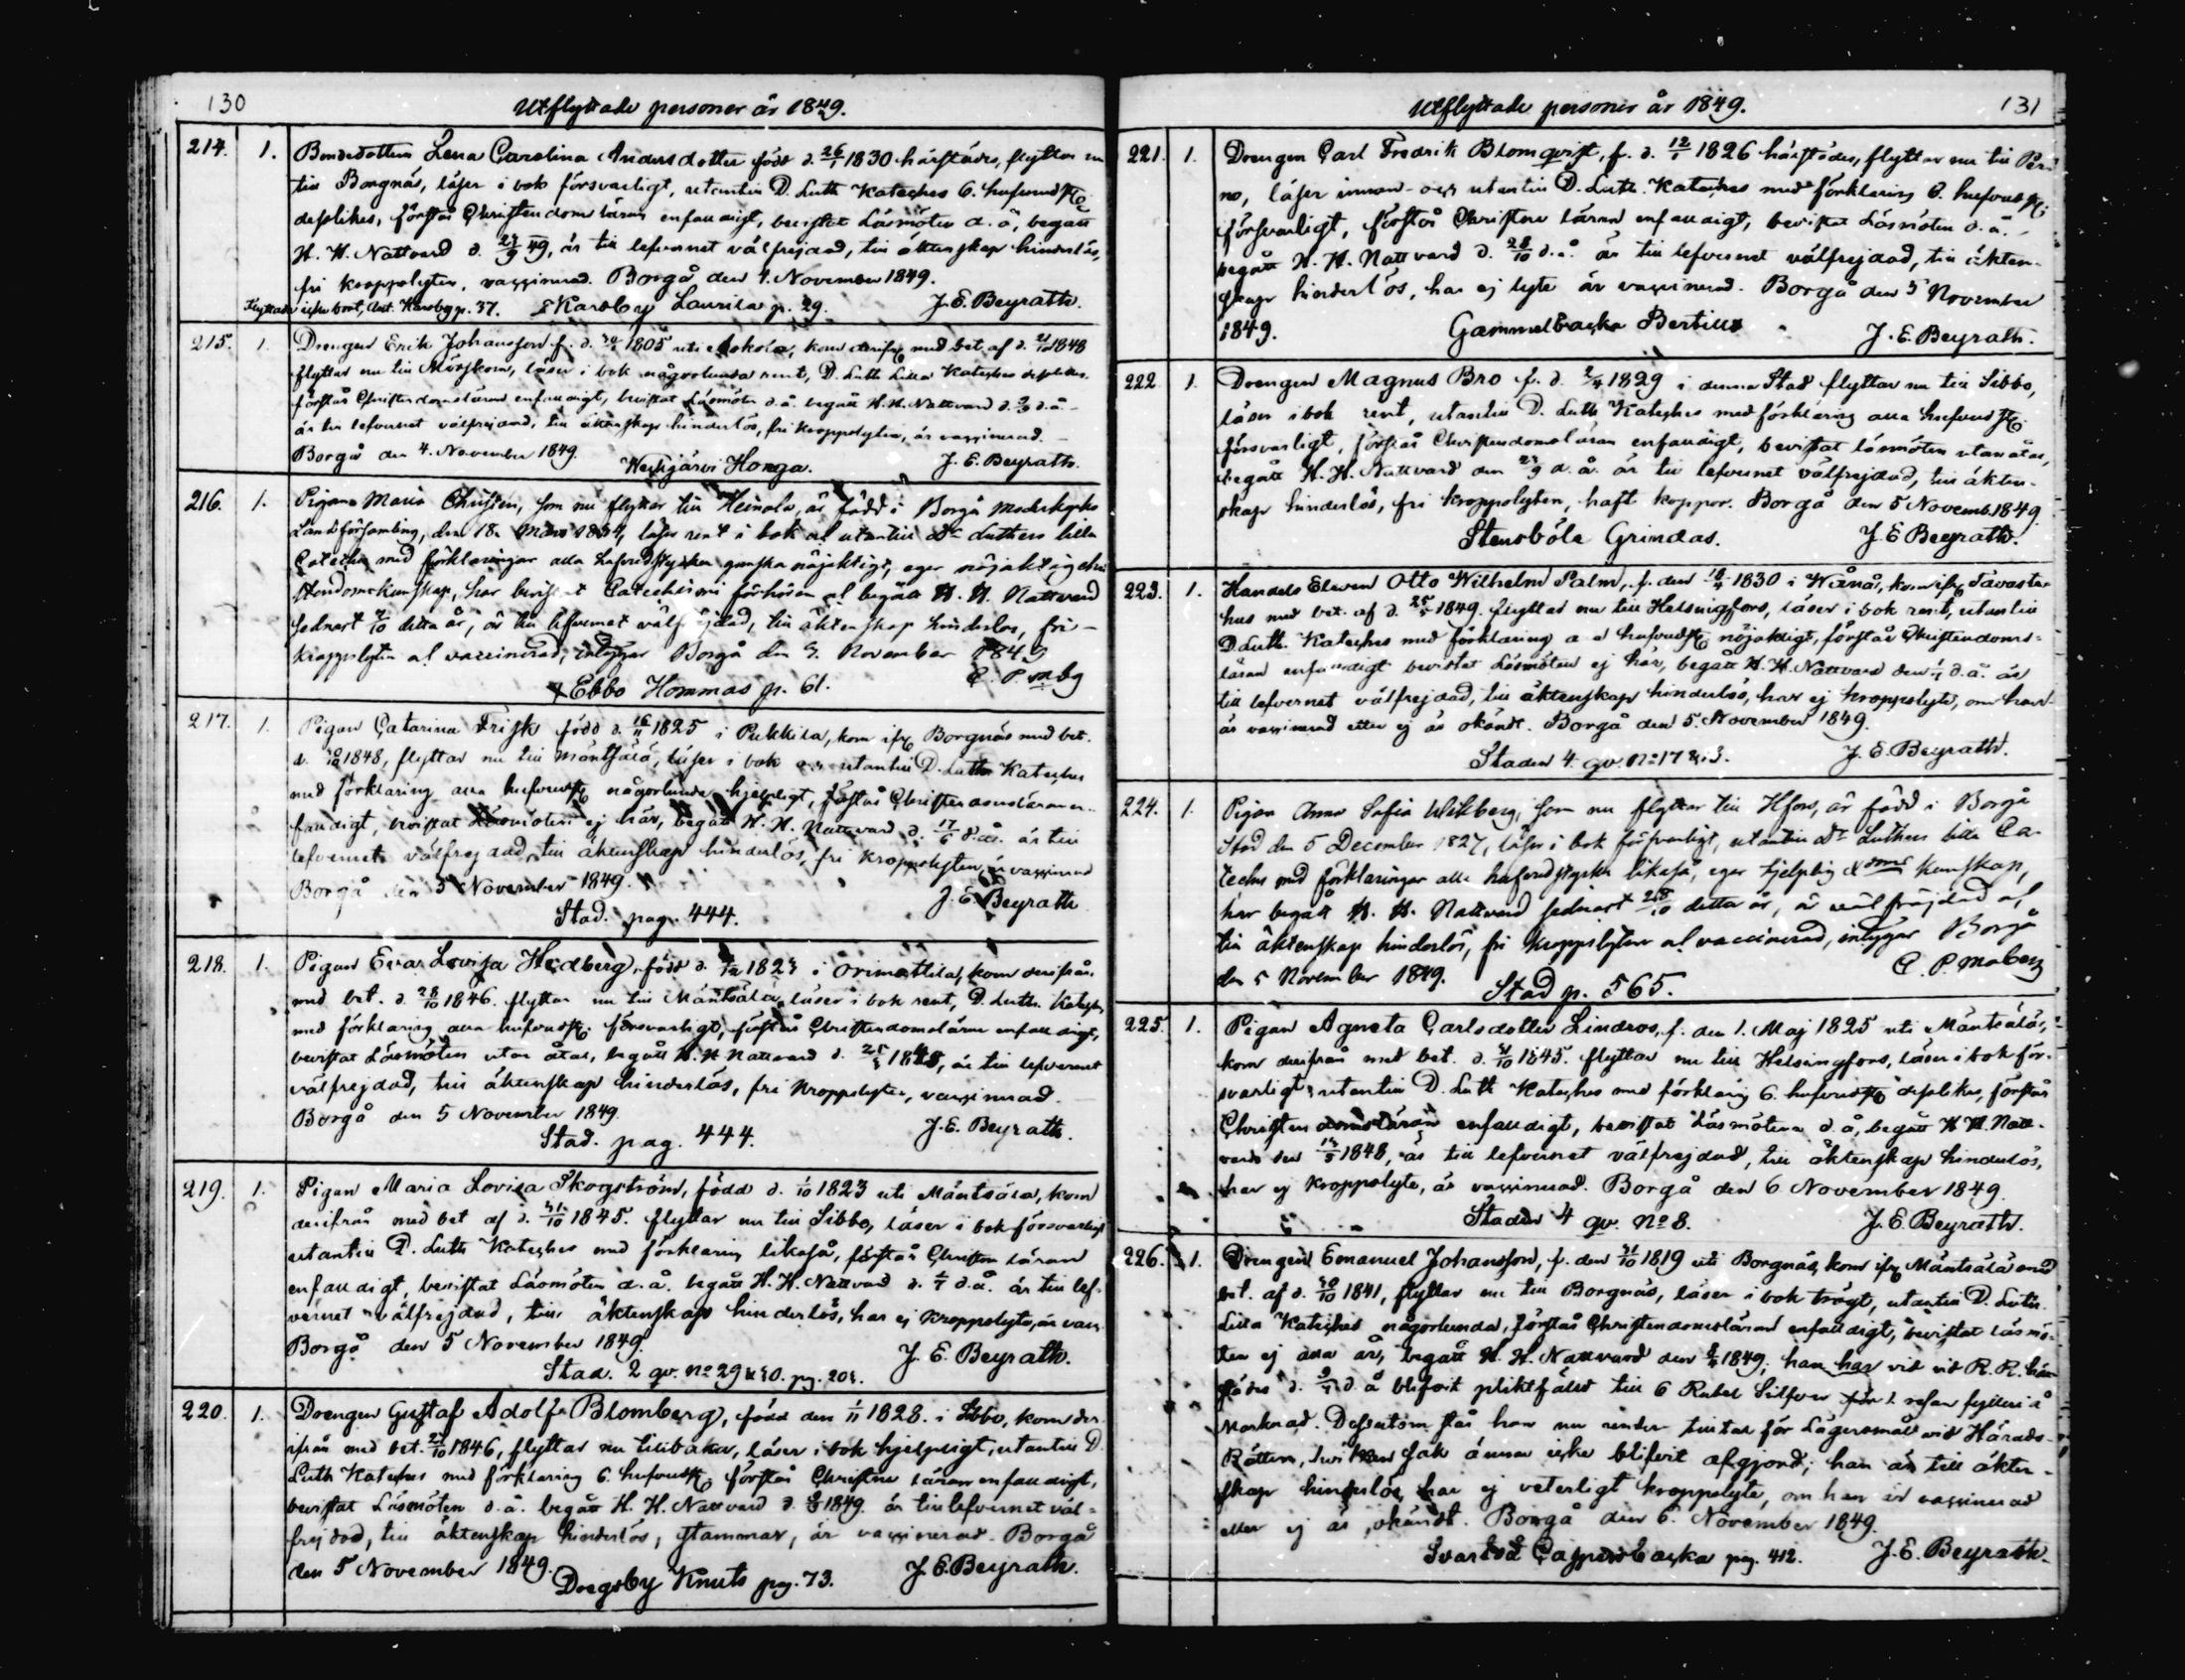 130
Utflyttade personer år 1849.
214. 1. Bondedottern Lena Carolina Andersdotter född d. 26/1 1830 härstädes, flyttar nu
till Borgnäs, läser i bok försvarligt, utantill D. Luth Kateches 6. hufvudst.
dessliks, förstår Christendomsläran enfaldigt, bevistat Läsmöten d. å, begått
H. H. Nattvard d. 23/9 49, är till lefvernet välfrejdad, till äktenskap hinderlös,
fri kroppslyten, vaccinerad. Borgå den 4. November 1849.
Flyttade icke bort, Karsby p. 37. Karsby Laurila p. 29. J. E. Beyrath.
215. 1. Drengen Erik Johansson f. d. 1805 uti Askola, kom derifr. med bet. af d. 1848
flyttar nu till Mörskom, läser i bok någorlunda rent, D. Luth Lilla Kateches dessliks.
förstår Christendomsläran enfaldigt, bevistat Läsmöten d. å. begått H. H. Nattvard d. d. å
är till lefvernet välfrejdad, till äktenskap hinderlös, fri kroppslyten, är vaccinerad.
Borgå den 4. November 1849. Weckjärvi Honga. J. E. Beyrath.
216. 1. Pigan Maria Christen, som nu flyttar till Heinola, är född i Borgå Moderkyrko
Landsförsamling, den 18 Mars, läser rent i bok utantill Dr Luthers lilla
Cateches med förklaringar alla hufvudstycken ganska nöjaktigt, eger nöjaktig chri
stendomskunskap, har bevistat Catechismi förhören begått H. H. Nattvard
sednast detta år, är till lefvernet välfrejdad, till äktenskap hinderlös, fri
kroppslyten vaccinerad, intygar Borgå den 5. November 1849
Ebbo Hommas p. 61. C. P. mbg
217. 1. Pigan Catarina Frisk född d. 16/11 1825 i Pukkila, kom ifr. Borgnäs med bet.
d. 1848, flyttar nu till Mäntsälä, läser i bok utantill D. Luth Kateches
med förklaring alla hufvudst. någorlunda hjelpligt, förstår Christendomsläran en-
faldigt, bevistat Läsmöten ej här, begått H. H. Nattvard d. 17/6 d. å. är till
lefvernet välfrejdad, till äktenskap hinderlös, fri kroppslyten, är vaccinerad
Borgå den 5 November 1849.
Stad. pag. 444. J. E. Beyrath
218. 1. Pigan Eva Lovisa Hedberg, född d. 1823 i Orimattila, kom derifrån
med bet. d. 28/10 1846. flyttar nu till Mäntsälä, läser i bok rent, D. Luth. Kateches
med förklaring alla hufvudst. försvarligt, förstår Christendomsläran enfaldigt,
bevistat Läsmöten utan åtal, begått H. H Nattvard d., är till lefvernet
välfrejdad, till äktenskap hinderlös, fri kroppslyten, vaccinerad.
Borgå den 5 November 1849.
Stad. pag. 444. J. E. Beyrath.
219. 1. Pigan Maria Lovisa Skogström, född d. 1/10 1823 uti Mäntsälä, kom
derifrån med bet af d. 31/10 1845. flyttar nu till Sibbo, läser i bok försvarligt
utantill D. Luth Kateches med förklaring likaså, förstår Christna läran
enfaldigt, bevistat Läsmöten d. å. begått H. H. Nattvard d. d. å. är till lef-
vernet välfrejdad, till äktenskap hinderlös, har ej kroppslyte, är vacc.
Borgå den 5 November 1849.
Stad. 2 qv. No 29 & 30. pg. 203. J. E. Beyrath.
220. 1. Drengen Gustaf Adolf Blomberg, född den 1/11 1828. i Sibbo, kom der-
ifrån med bet. 1846, flyttar nu tillbaka, läser i bok hjelpligt, utantill D.
Luth Kateches med förklaring 6. hufvudst. förstår Christna läran enfaldigt,
bevistat Läsmöten d. å. begått H. H. Nattvard d. 1849. är till lefvernet väl-
frejdad, till äktenskap hinderlös, stammar, är vaccinerad. Borgå
den 5 November 1849. Drägsby Knuts pag. 73. J. E. Beyrath.
Utflyttade personer år 1849. 131
221. 1. Drengen Carl Fredrik Blomqvist, f. d. 12/1 1826 härstädes, flyttar nu till Per-
no, läser innan- och utantill D. Luth. Kateches med förklaring 6. hufvudst.
försvarligt, förstår Christna läran enfaldigt, bevistat Läsmöten d. å.
begått H. H. Nattvard d. 28/10 d. å. är till lefvernet välfrejdad, till äkten-
skap hinderlös, har ej lyte är vaccinerad. Borgå den 5 November
1849. Gammelbacka Bertills J. E. Beyrath.
222 1. Drengen Magnus Bro f. d. 2/4 1829 i denna Stad flyttar nu till Sibbo,
läser i bok rent, utantill D. Luth Kateches med förklaring alla hufvudst.
försvarligt, förstår Christendomsläran enfaldigt, bevistat läsmöten utan åtal,
begått H. H. Nattvard den 23/9 d. å. är till lefvernet välfrejdad, till äkten-
skap hinderlös, fri kroppslyten, haft koppor. Borgå den 5 Novemb. 1849.
Stensböle Grindas. J. E Beyrath.
223. 1. Handels Eleven Otto Wilhelm Palm, f. den 1830 i Wånå, kom ifr. Tavaste-
hus med bet. af d. 1849. flyttar nu till Helsingfors, läser i bok rent, utantill
D. Luth. Kateches med förklaring hufvudst. nöjaktigt, förstår Christendoms-
läran enfaldigt bevistat Läsmöten ej här, begått H. H. Nattvard den d. å. är
till lefvernet välfrejdad, till äktenskap hinderlös, har ej kroppslyte, om han
är vaccinerad eller ej är okändt. Borgå den 5. November 1849.
Staden 4. qv. No 17 J. E. Beyrath.
224. 1. Pigan Anna Sofia Wikberg, som nu flyttar till Hfors, är född i Borgå
Stad den 5 December 1827, läser i bok försvarligt, utantill Dr Luthers lilla Ca-
teches med förklaringar alla hufvudstycken likaså, eger hjelplig kunskap,
har begått H. H. Nattvard sednast 28/10 detta år, är välfräjdad
till äktenskap hinderlös, fri kroppslyten vaccinerad, intygar Borgå
den 5 November 1849. Stad p. 565. C. P. Moberg
225. 1. Pigan Agneta Carlsdotter Lindroos, f. den 1. Maj 1825 uti Mäntsälä,
kom derifrån med bet. d. 31/10 1845. flyttar nu till Helsingfors, läser i bok för-
svarligt, utantill D. Luth Kateches med förklaring 6. hufvudst. dessliks, förstår
Christendomsläran enfaldigt, bevistat Läsmötena d. å, begått H H. Natt-
vard den 1848, är till lefvernet välfrejdad, till äktenskap hinderlös,
har ej kroppslyte, är vaccinerad. Borgå den 6 November 1849.
Staden 4 qv. No 8. J. E. Beyrath.
226. 1. Drengen Emanuel Johansson, f. den 31/10 1819 uti Borgnäs, kom ifr. Mäntsälä med
bet. af d. 30/10 1841, flyttar nu till Borgnäs, läser i bok trögt, utantill D. Luth.
Lilla Kateches någorlunda, förstår Christendomsläran enfaldigt, bevistat läsmö-
ten ej alla år, begått H. H. Nattvard den 1849; han har vid R. R. här-
städes d. d. å blifvit pliktfälld till 6 Rubel Silfver för 1. resan fylleri å
Marknad. Dessutom står han nu under tilltal för Lägersmål vid Härads-
Rätten, hvilken sak ännu icke blifvit afgjord; han är till äkten-
skap hinderlös, har ej veterligt kroppslyte, om han är vaccinerad
eller ej är okändt. Borgå den 6. November 1849.
Svartså Caspersbacka pag. 412. J. E. Beyrath.